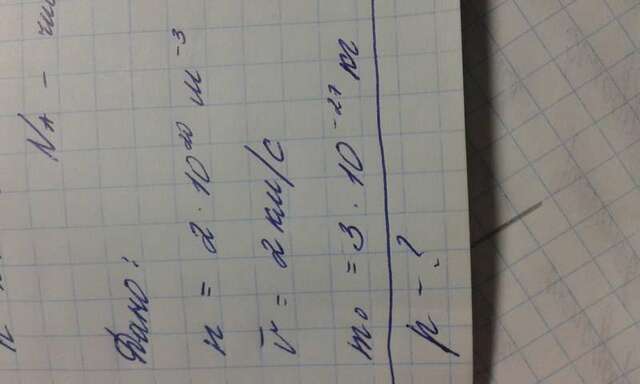 N_A -
Дано:
n = 2 · 10²⁰ м⁻³
v̄ = 2 км/с
m₀ = 3 · 10⁻²⁷ кг
p - ?